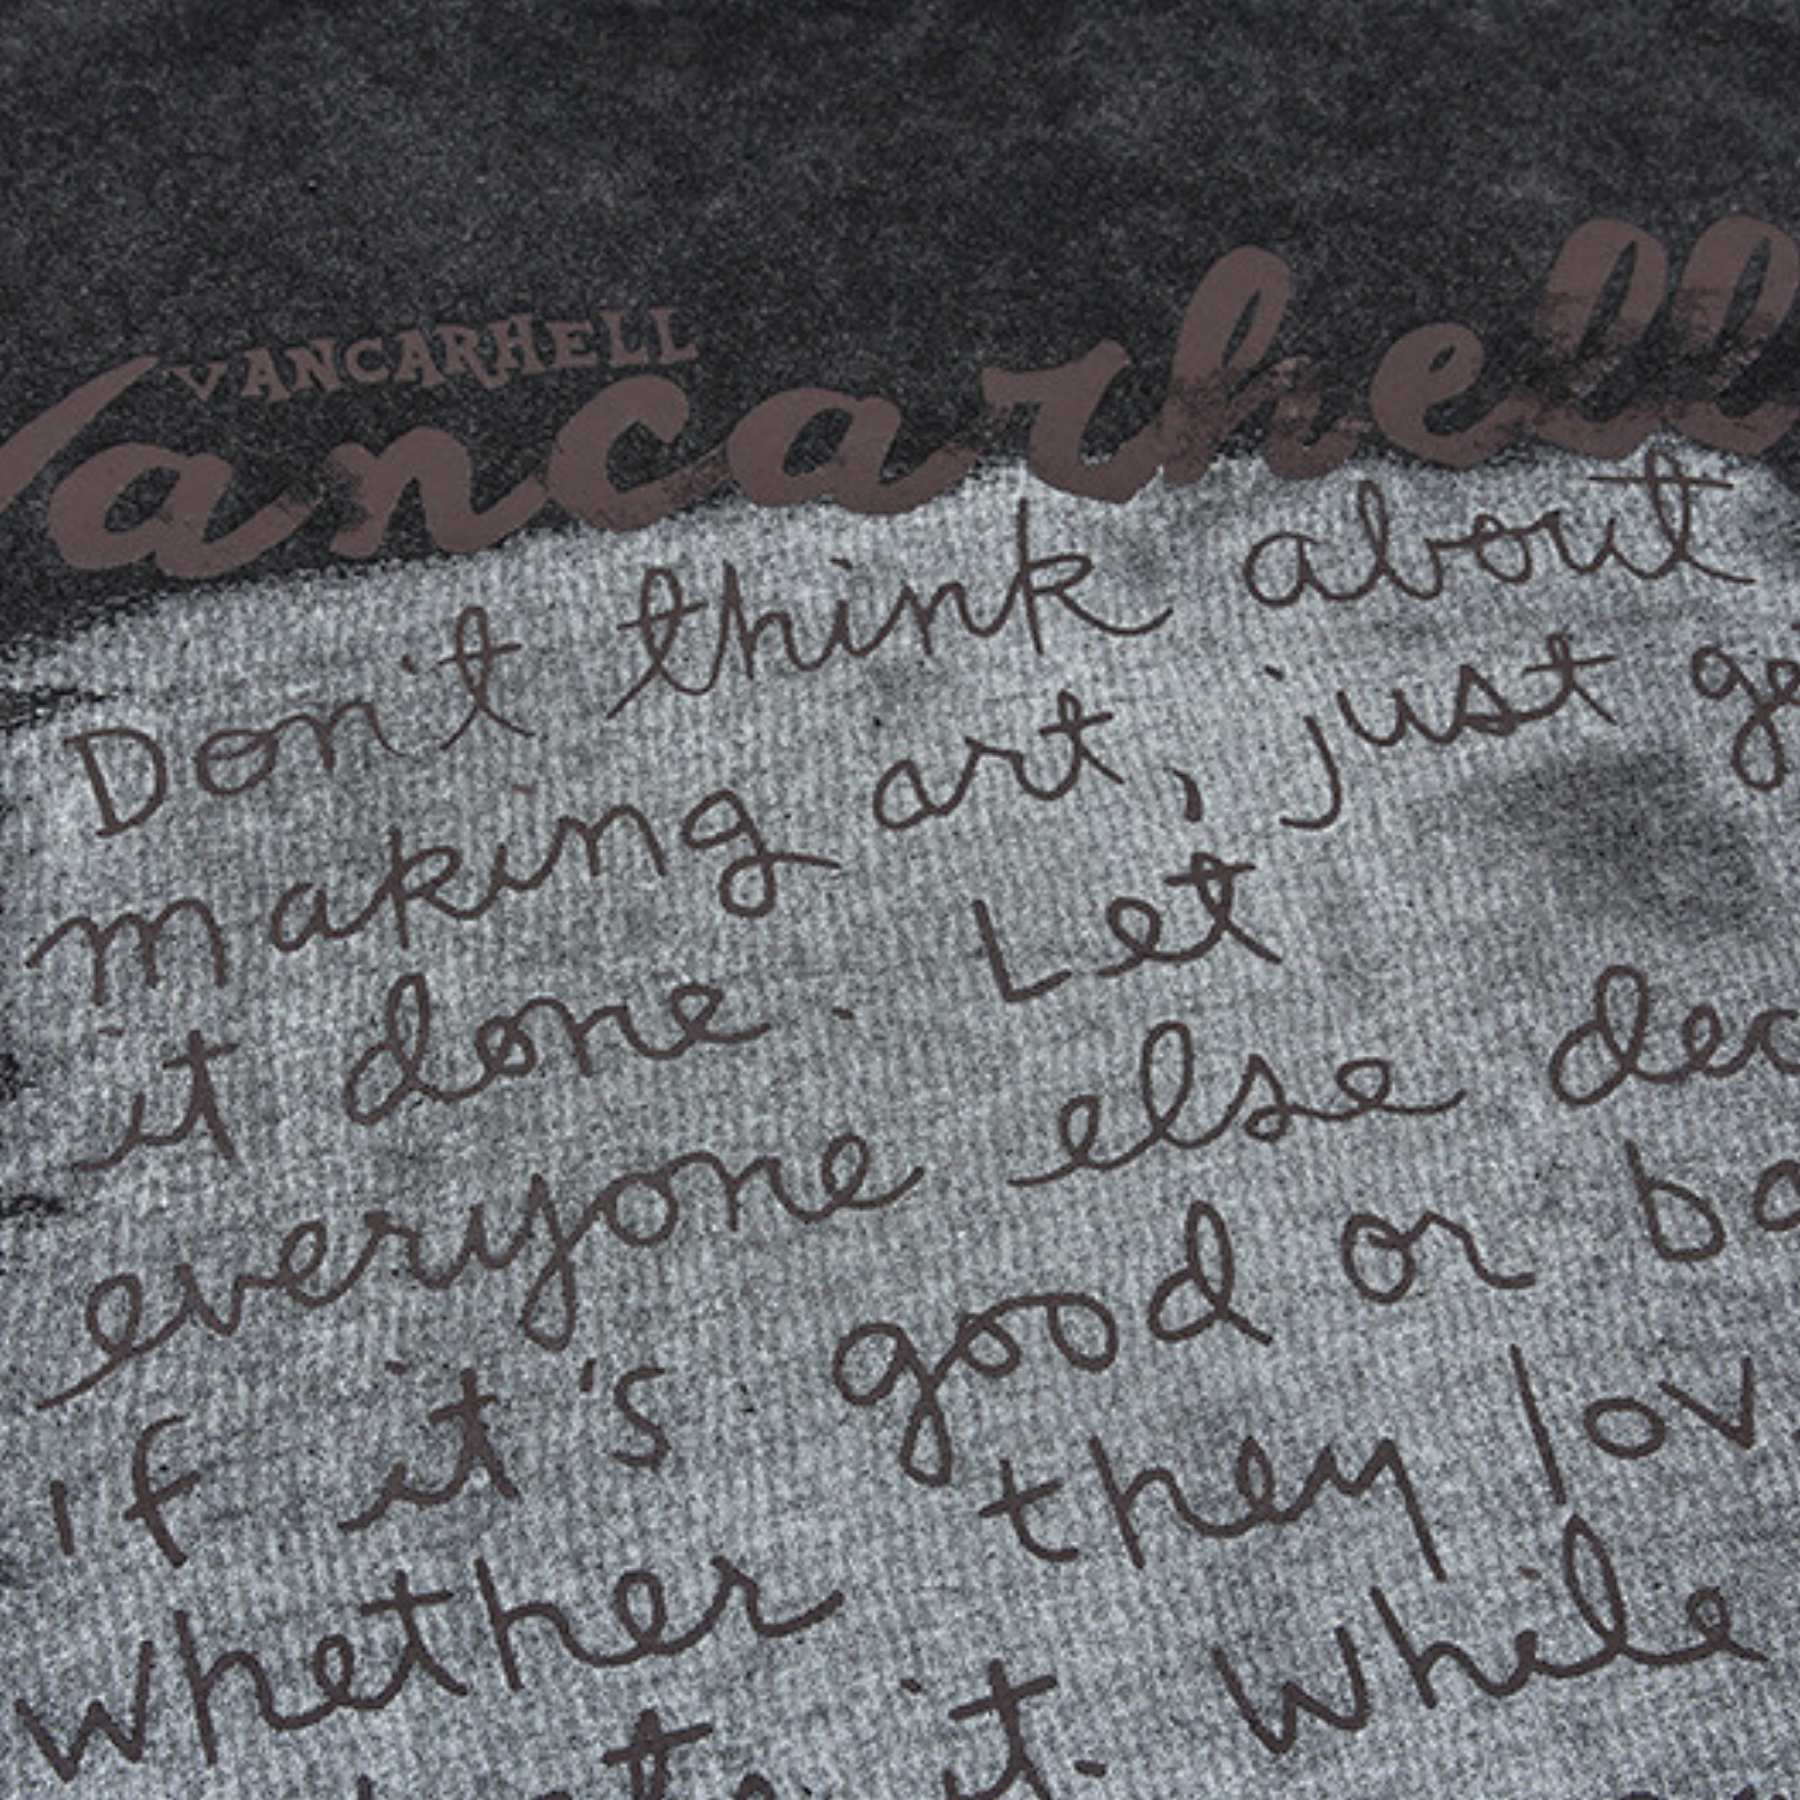 VANCARHELL
Vancarhell
Don't think about
making art, just ge
it done. Let
everyone else dec
if it's good or ba
whether they lov
it. While